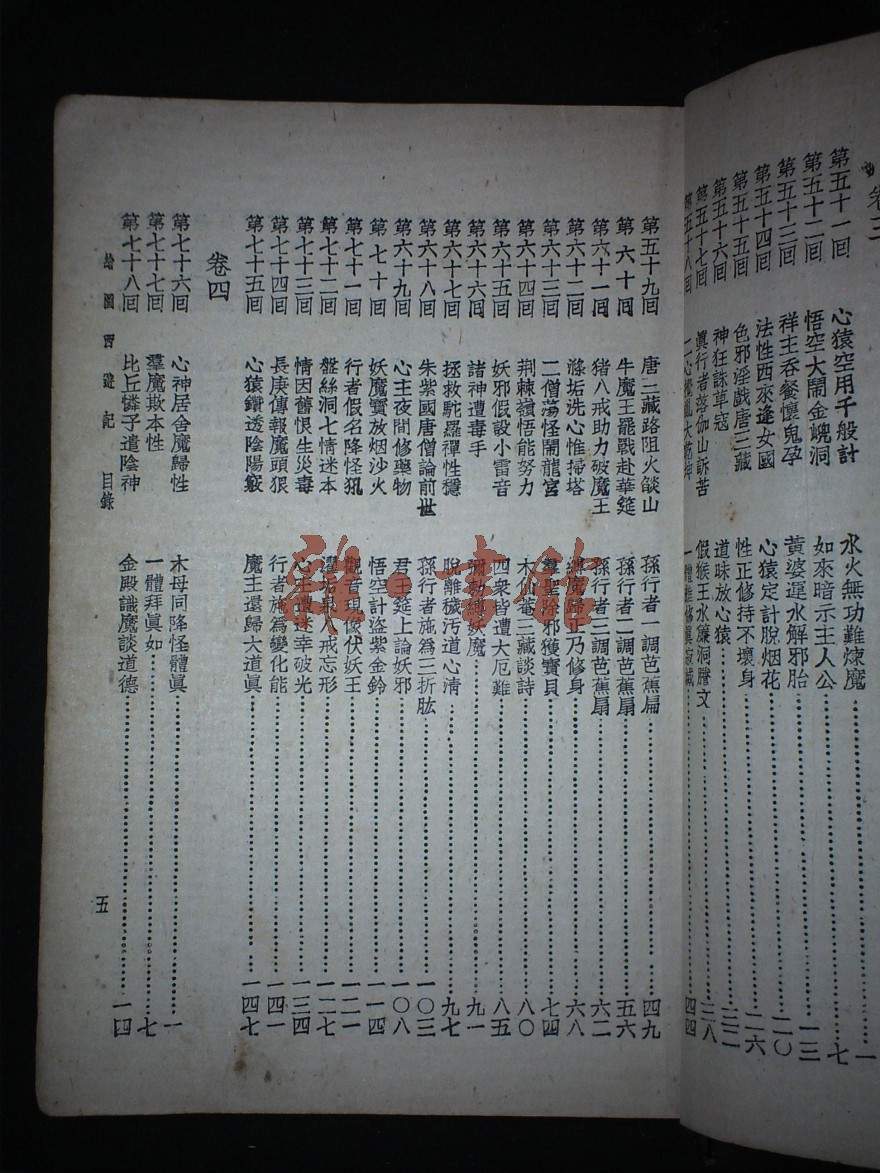 卷三
第五十一回 心猿空用千般計 水火無功難煉魔 一
第五十二回 悟空大鬧金𠺕洞 如來暗示主人公 七
第五十三回 祥主吞餐懷鬼孕 黃婆運水解邪胎 一三
第五十四回 法性西來逢女國 心猿定計脫烟花 二〇
第五十五回 色邪淫戲唐三藏 性正修持不壞身 二六
第五十六回 神狂誅草寇 道昧放心猿 三二
第五十七回 眞行者落伽山訴苦 假猴王水簾洞謄文 三八
第五十八回 二心攪亂大乾坤 一體難修眞寂滅 四四
第五十九回 唐三藏路阻火燄山 孫行者一調芭蕉扇 四九
第六十回 牛魔王罷戰赴華筵 孫行者二調芭蕉扇 五六
第六十一回 猪八戒助力破魔王 孫行者三調芭蕉扇 六二
第六十二回 滌垢洗心惟掃塔 縛魔歸正乃修身 六八
第六十三回 二僧蕩怪鬧龍宮 羣聖除邪獲寶貝 七四
第六十四回 荆棘嶺悟能努力 木仙菴三藏談詩 八〇
第六十五回 妖邪假設小雷音 四衆皆遭大厄難 八五
第六十六回 諸神遭毒手 彌勒縛妖魔 九一
第六十七回 拯救駝羅禪性穩 脫離穢污道心淸 九七
第六十八回 朱紫國唐僧論前世 孫行者施爲三折肱 一〇三
第六十九回 心主夜間修藥物 君王筵上論妖邪 一〇八
第七十回 妖魔寶放烟沙火 悟空計盜紫金鈴 一一四
第七十一回 行者假名降怪犼 觀音現像伏妖王 一二一
第七十二回 盤絲洞七情迷本 濯垢泉八戒忘形 一二七
第七十三回 情因舊恨生災毒 心主遭迷幸破光 一三四
第七十四回 長庚傳報魔頭狠 行者施爲變化能 一四一
第七十五回 心猿鑽透陰陽竅 魔主還歸大道眞 一四七
卷四
第七十六回 心神居舍魔歸性 木母同降怪體眞 一
第七十七回 羣魔欺本性 一體拜眞如 七
第七十八回 比丘憐子遣陰神 金殿識魔談道德 一四
繪圖西遊記 目錄 五